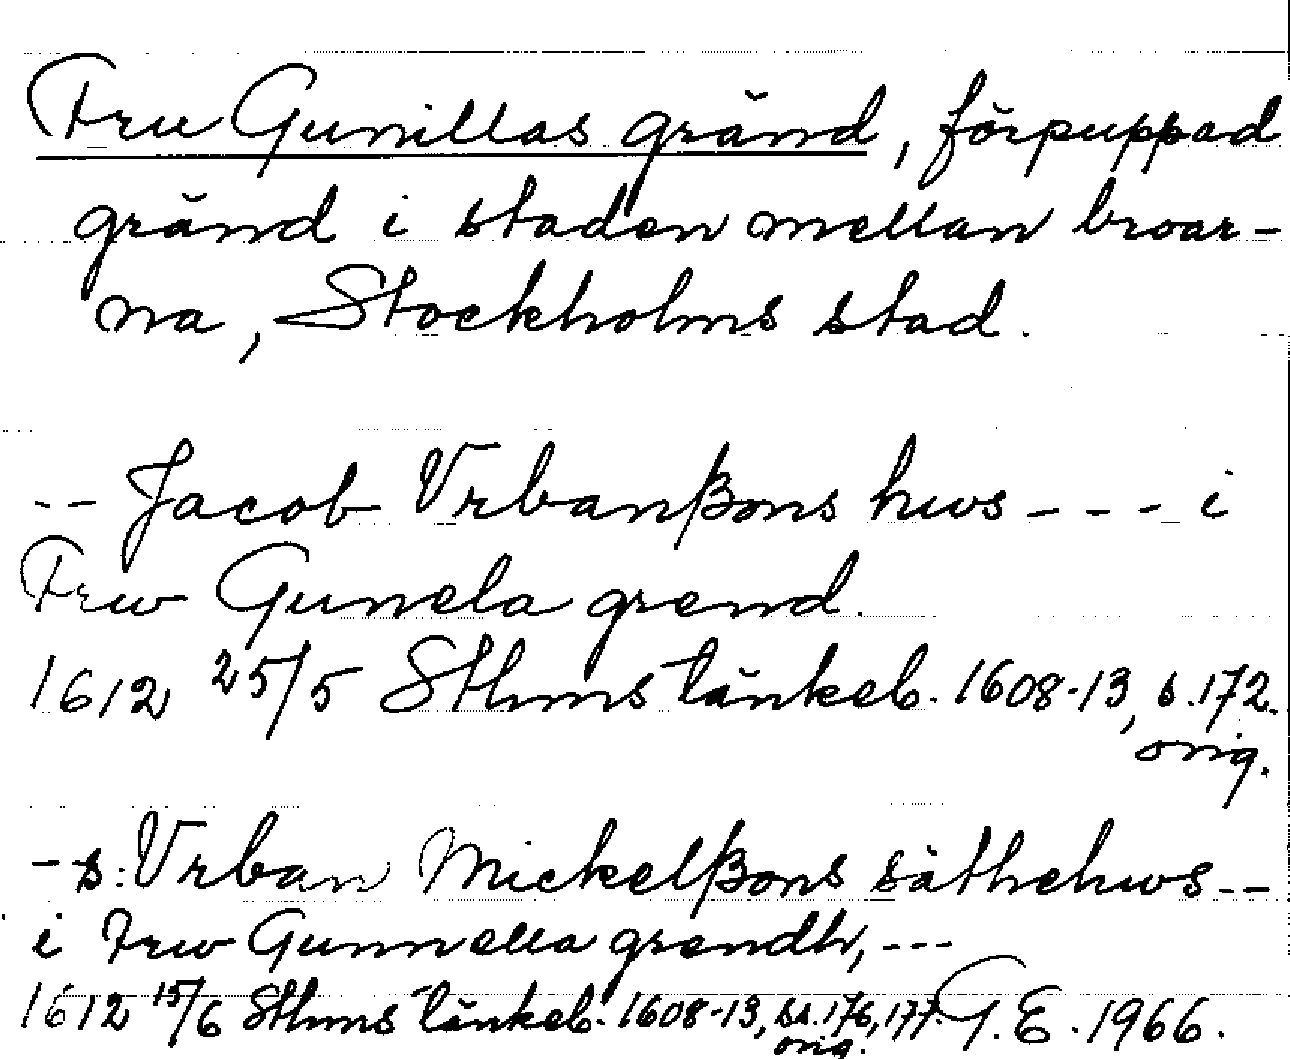 Fru Gunillas gränd, förpuppad
gränd i staden mellan broar-
na, Stockholms stad.
-- Jacob Vrbanßons hws --- i
Frw Gunela grend.
1612 25/5 Sthms tänkeb. 1608-13, s. 172.
orig.
- s: Vrban Mickelßons säthehws --
i Frw Gunnella grendh, ---
1612 15/6 Sthms tänkeb. 1608-13, ss. 176, 177. G. E. 1966.
orig.